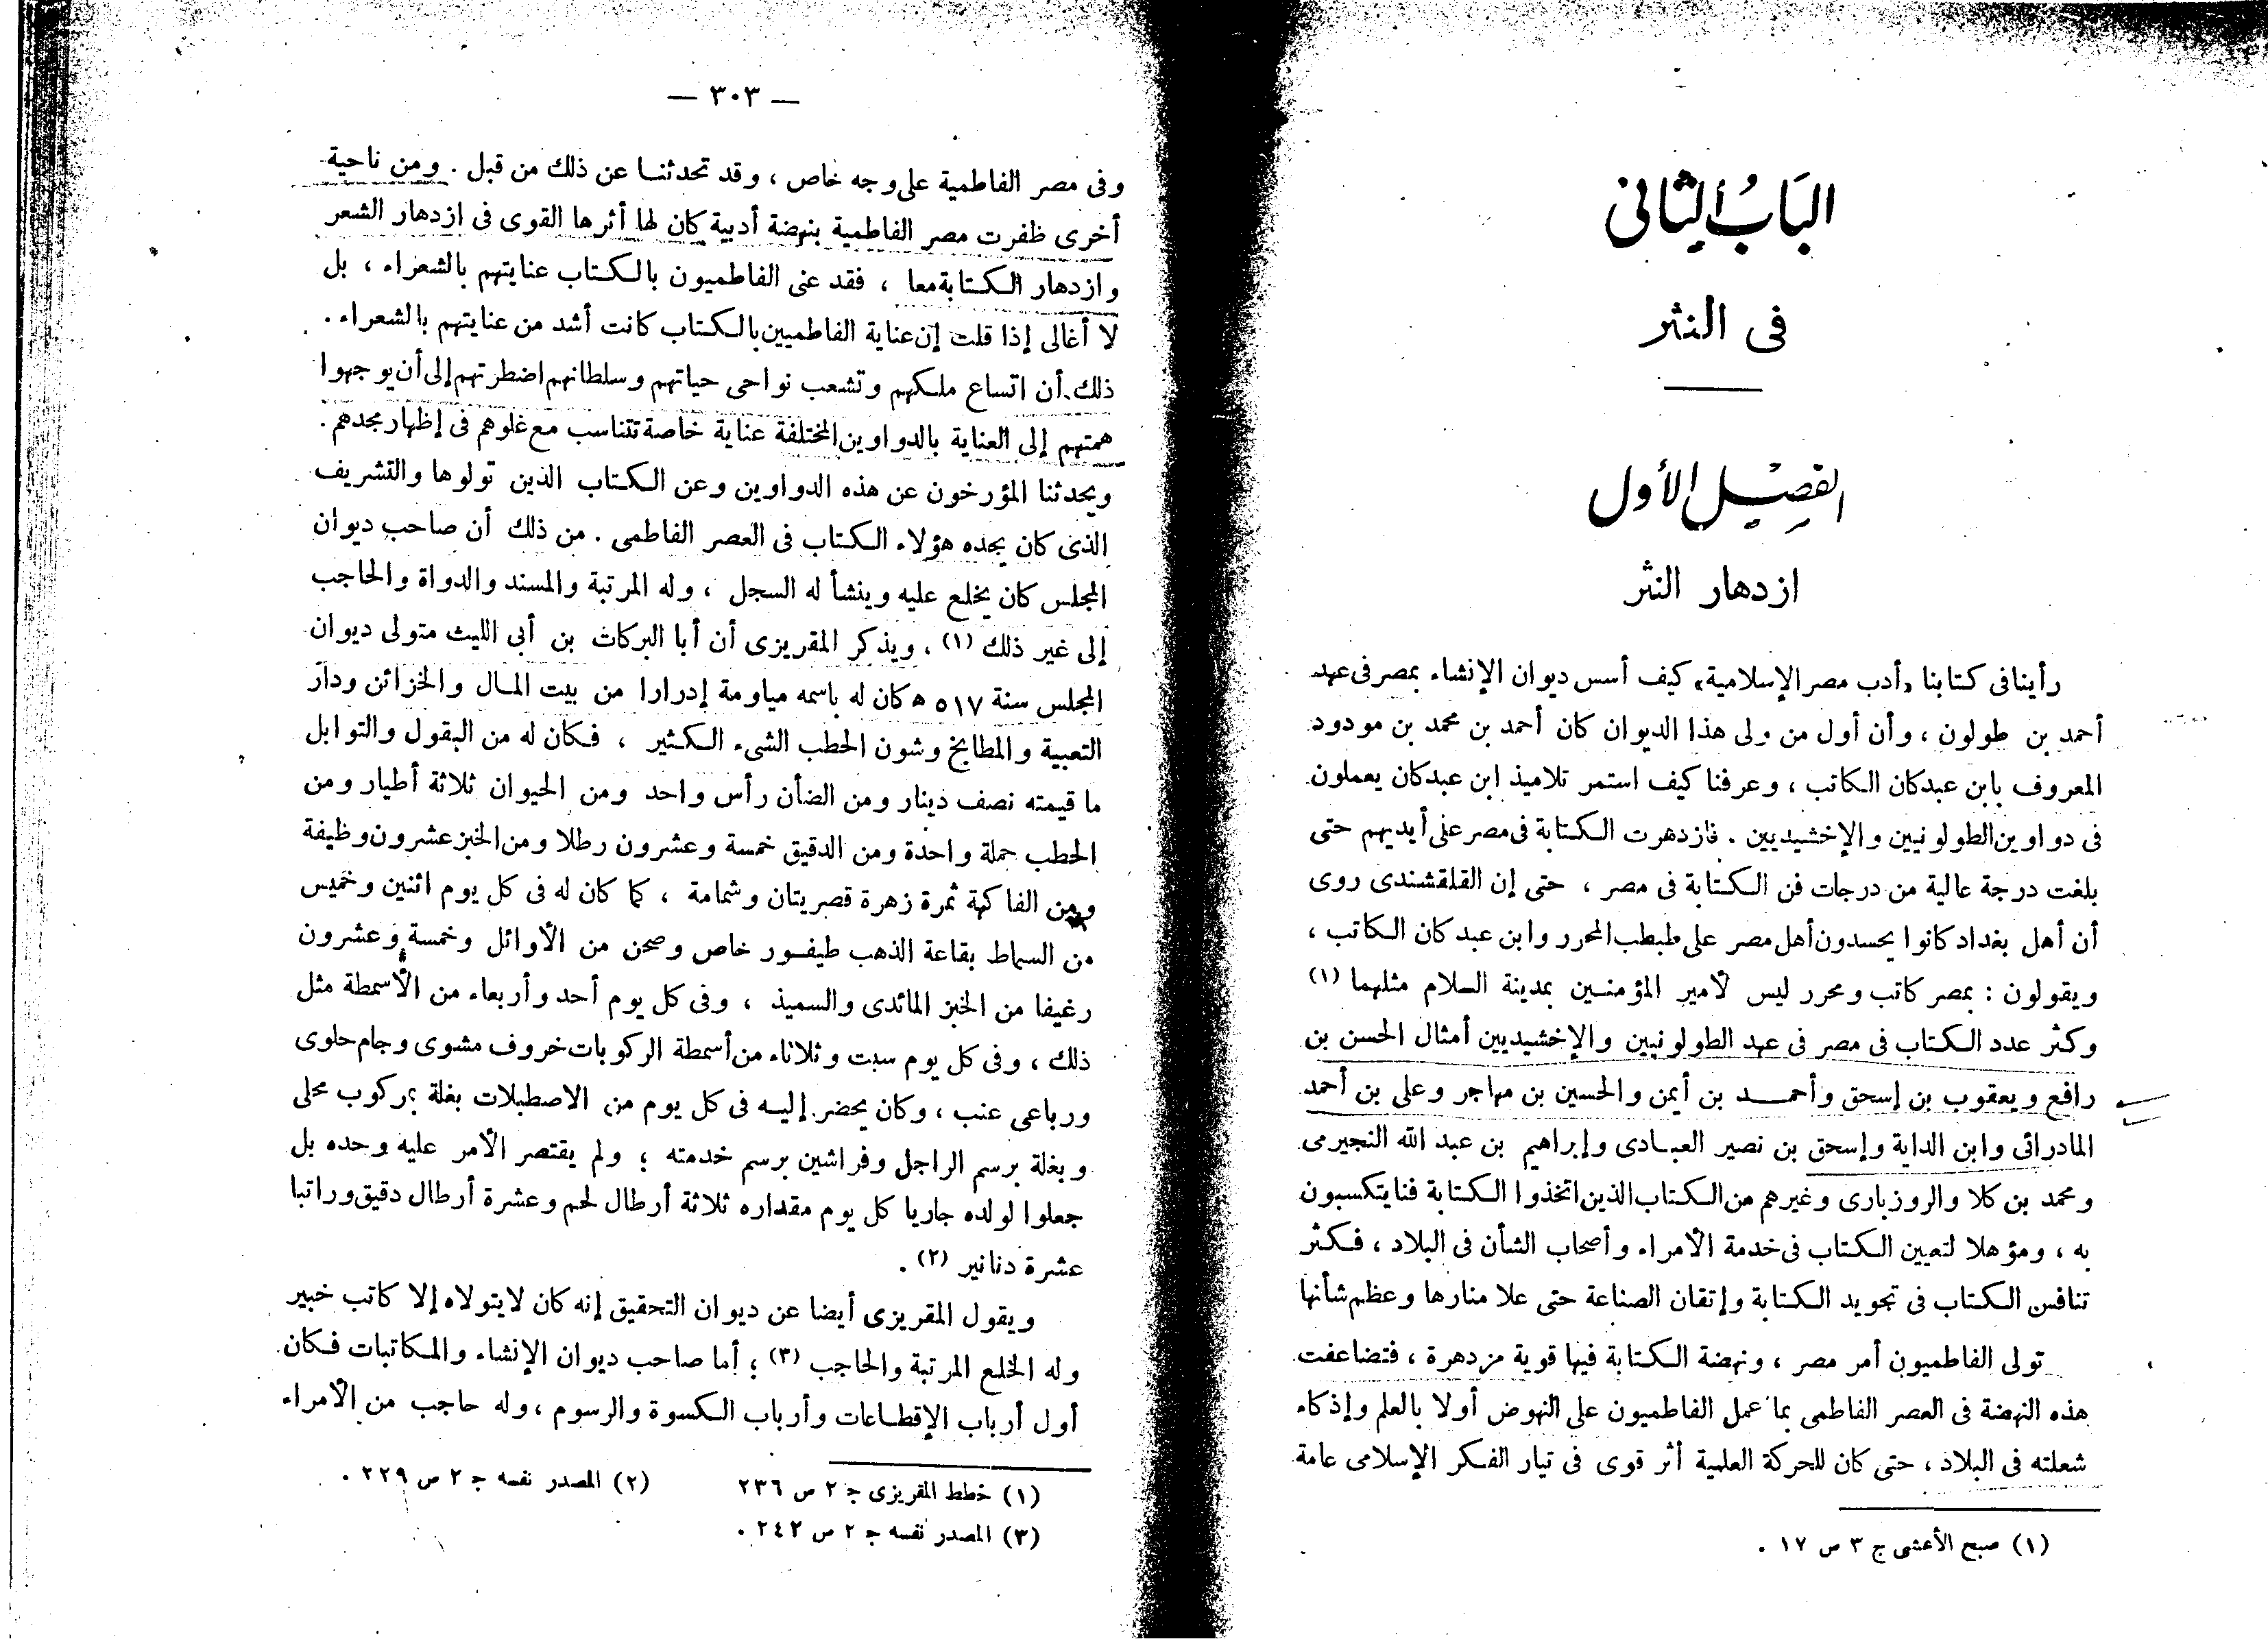 الباب الثاني
في النثر
الفصل الأول
ازدهار النثر
رأينا في كتابنا «أدب مصر الإسلامية» كيف أسس ديوان الإنشاء بمصر في عهد
أحمد بن طولون ، وأن أول من ولى هذا الديوان كان أحمد بن محمد بن مودود
المعروف بابن عبدكان الكاتب ، وعرفنا كيف استمر تلاميذ ابن عبدكان يعملون
في دواوين الطولونيين والإخشيديين . فازدهرت الكتابة في مصر على أيديهم حتى
بلغت درجة عالية من درجات فن الكتابة في مصر ، حتى إن القلقشندى روى
أن أهل بغداد كانوا يحسدون أهل مصر على طبطب المحرر وابن عبد كان الكاتب ،
ويقولون : بمصر كاتب ومحرر ليس لأمير المؤمنين بمدينة السلام مثلهما (١)
وكثر عدد الكتاب في مصر في عهد الطولونيين والإخشيديين أمثال الحسن بن
رافع ويعقوب بن إسحق وأحمد بن أيمن والحسين بن مهاجر وعلى بن أحمد
المادرائى وابن الداية وإسحق بن نصير العبادى وإبراهيم بن عبد الله النجيرمى
ومحمد بن كلا والروزبارى وغيرهم من الكتاب الذين اتخذوا الكتابة فنا يتكسبون
به ، ومؤهلا لتعيين الكتاب في خدمة الأمراء وأصحاب الشأن في البلاد ، فكثر
تنافس الكتاب في تجويد الكتابة وإتقان الصناعة حتى علا منارها وعظم شأنها
تولى الفاطميون أمر مصر ، ونهضة الكتابة فيها قوية مزدهرة ، فتضاعفت
هذه النهضة في العصر الفاطمى بما عمل الفاطميون على النهوض أولا بالعلم وإذكاء
شعلته في البلاد ، حتى كان للحركة العلمية أثر قوى في تيار الفكر الإسلامى عامة
(١) صبح الأعشى ج ٣ ص ١٧ .
— ٣٠٣ —
وفى مصر الفاطمية على وجه خاص ، وقد تحدثنا عن ذلك من قبل . ومن ناحية
أخرى ظفرت مصر الفاطمية بنهضة أدبية كان لها أثرها القوى في ازدهار الشعر
وازدهار الكتابة معا ، فقد عنى الفاطميون بالكتاب عنايتهم بالشعراء ، بل
لا أغالى إذا قلت إن عناية الفاطميين بالكتاب كانت أشد من عنايتهم بالشعراء .
ذلك أن اتساع ملكهم وتشعب نواحى حياتهم وسلطانهم اضطرتهم إلى أن يوجهوا
همتهم إلى العناية بالدواوين المختلفة عناية خاصة تتناسب مع غلوهم في إظهار مجدهم .
ويحدثنا المؤرخون عن هذه الدواوين وعن الكتاب الذين تولوها والتشريف
الذى كان يجده هؤلاء الكتاب في العصر الفاطمى . من ذلك أن صاحب ديوان
المجلس كان يخلع عليه وينشأ له السجل ، وله المرتبة والمسند والدواة والحاجب
إلى غير ذلك (١) ، ويذكر المقريزى أن أبا البركات بن أبى الليث متولى ديوان
المجلس سنة ٥١٧ ه كان له باسمه مياومة إدرارا من بيت المال والخزائن ودار
التعبية والمطابخ وشون الحطب الشىء الكثير ، فكان له من البقول والتوابل
ما قيمته نصف دينار ومن الضأن رأس واحد ومن الحيوان ثلاثة أطيار ومن
الحطب حملة واحدة ومن الدقيق خمسة وعشرون رطلا ومن الخبز عشرون وظيفة
ومن الفاكهة ثمرة زهرة قصريتان وشمامة ، كما كان له في كل يوم اثنين وخميس
من السماط بقاعة الذهب طيفور خاص وصحن من الأوائل وخمسة وعشرون
رغيفا من الخبز المائدى والسميذ ، وفى كل يوم أحد وأربعاء من الأسمطة مثل
ذلك ، وفى كل يوم سبت وثلاثاء من أسمطة الركوبات خروف مشوى وجام حلوى
ورباعى عنب ، وكان يحضر إليه في كل يوم من الاصطبلات بغلة بركوب محلى
وبغلة برسم الراجل وفراشين برسم خدمته ؛ ولم يقتصر الأمر عليه وحده بل
جعلوا لولده جاريا كل يوم مقداره ثلاثة أرطال لحم وعشرة أرطال دقيق وراتبا
عشرة دنانير (٢) .
ويقول المقريزى أيضا عن ديوان التحقيق إنه كان لا يتولاه إلا كاتب خبير
وله الخلع المرتبة والحاجب (٣) ؛ أما صاحب ديوان الإنشاء والمكاتبات فكان
أول أرباب الإقطاعات وأرباب الكسوة والرسوم ، وله حاجب من الأمراء
(١) خطط المقريزى ج ٢ ص ٢٣٦ (٢) المصدر نفسه ج ٢ ص ٢٢٩ .
(٣) المصدر نفسه ج ٢ ص ٢٤٢ .